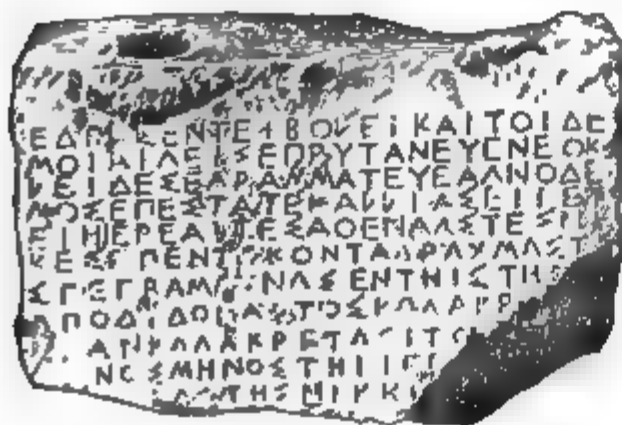 ΕΔΟΧΣΕΝΤΕΙΒΟΛΕΙΚΑΙΤΟΙΔΕ
ΜΟΙΑΙΓΕΙΣΕΠΡΥΤΑΝΕΥΕΝΕΟΚ
ΛΕΙΔΕΣΕΓΡΑΜΜΑΤΕΥΕΑΓΝΟΔΕ
ΜΟΣΕΠΕΣΤΑΤΕΚΑΛΛΙΑΣΕΙΠΕ
ΕΙΗΙΕΡΕΑΙΤΕΣΑΘΕΝΑΑΣΤΕΣ
ΚΕΣΠΕΝΤΗΚΟΝΤΑΔΡΑΧΜΑΣΤ
ΣΓΕΓΡΑΜΕΝΑΣΕΝΤΗΙΣΤΗ
ΠΟΔΙΔΟΝΑΙΤΟΣΚΩΛΑΚΡ
ΑΝΚΩΛΑΚΡΕΤΩΣΙΤΟ
ΝΟΣΜΗΝΟΣΤΗΙΙΕ
ΤΗΣΝΙΚ